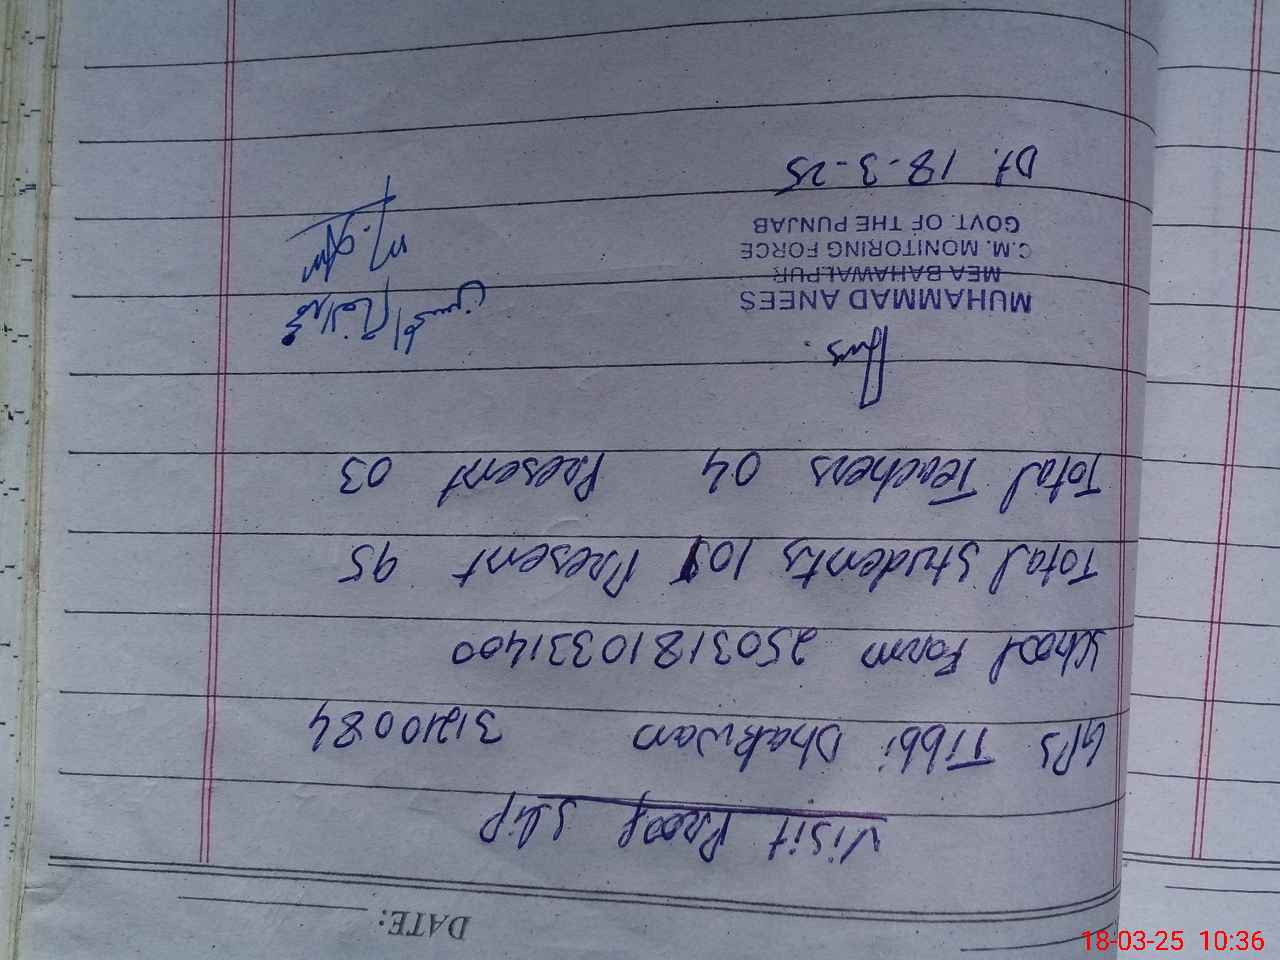 DATE:
Visit Proof Slip
GPS Tibbi Dhakwan 31210084
School Form 25031810331400
Total Students 101 Present 95
Total Teachers 04 Present 03
MUHAMMAD ANEES
MEA BAHAWALPUR
C.M. MONITORING FORCE
GOVT. OF THE PUNJAB
Dt. 18-3-25
18-03-25 10:36